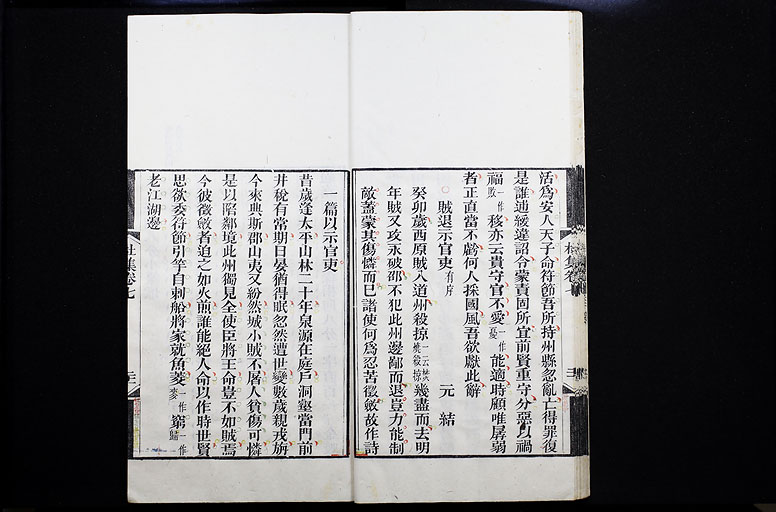 活爲安人天子命符節吾所持州縣忽亂亡得罪復
是誰逋緩違詔令蒙責固所宜前賢重守分惡以禍
福一作敗移亦云貴守官不愛一作憂能適時顧唯孱弱
者正直當不虧何人採國風吾欲獻此辭
賊退示官吏有序 元結
癸卯歲西原賊入道州殺掠一云焚燒殺掠幾盡而去明
年賊又攻永破邵不犯此州邊鄙而退豈力能制
敵蓋蒙其傷憐而已諸使何爲忍苦徵斂故作詩
一篇以示官吏
昔歲逢太平山林二十年泉源在庭戶洞壑當門前
井稅有常期日晏猶得眠忽然遭世變數歲親戎旃
今來典斯郡山夷又紛然城小賊不屠人貧傷可憐
是以陷鄰境此州獨見全使臣將王命豈不如賊焉
今彼徵斂者迫之如火煎誰能絕人命以作時世賢
思欲委符節引竿自刺船將家就魚菱一作麥窮一作歸
老江湖邊
杜集卷七
杜集卷七